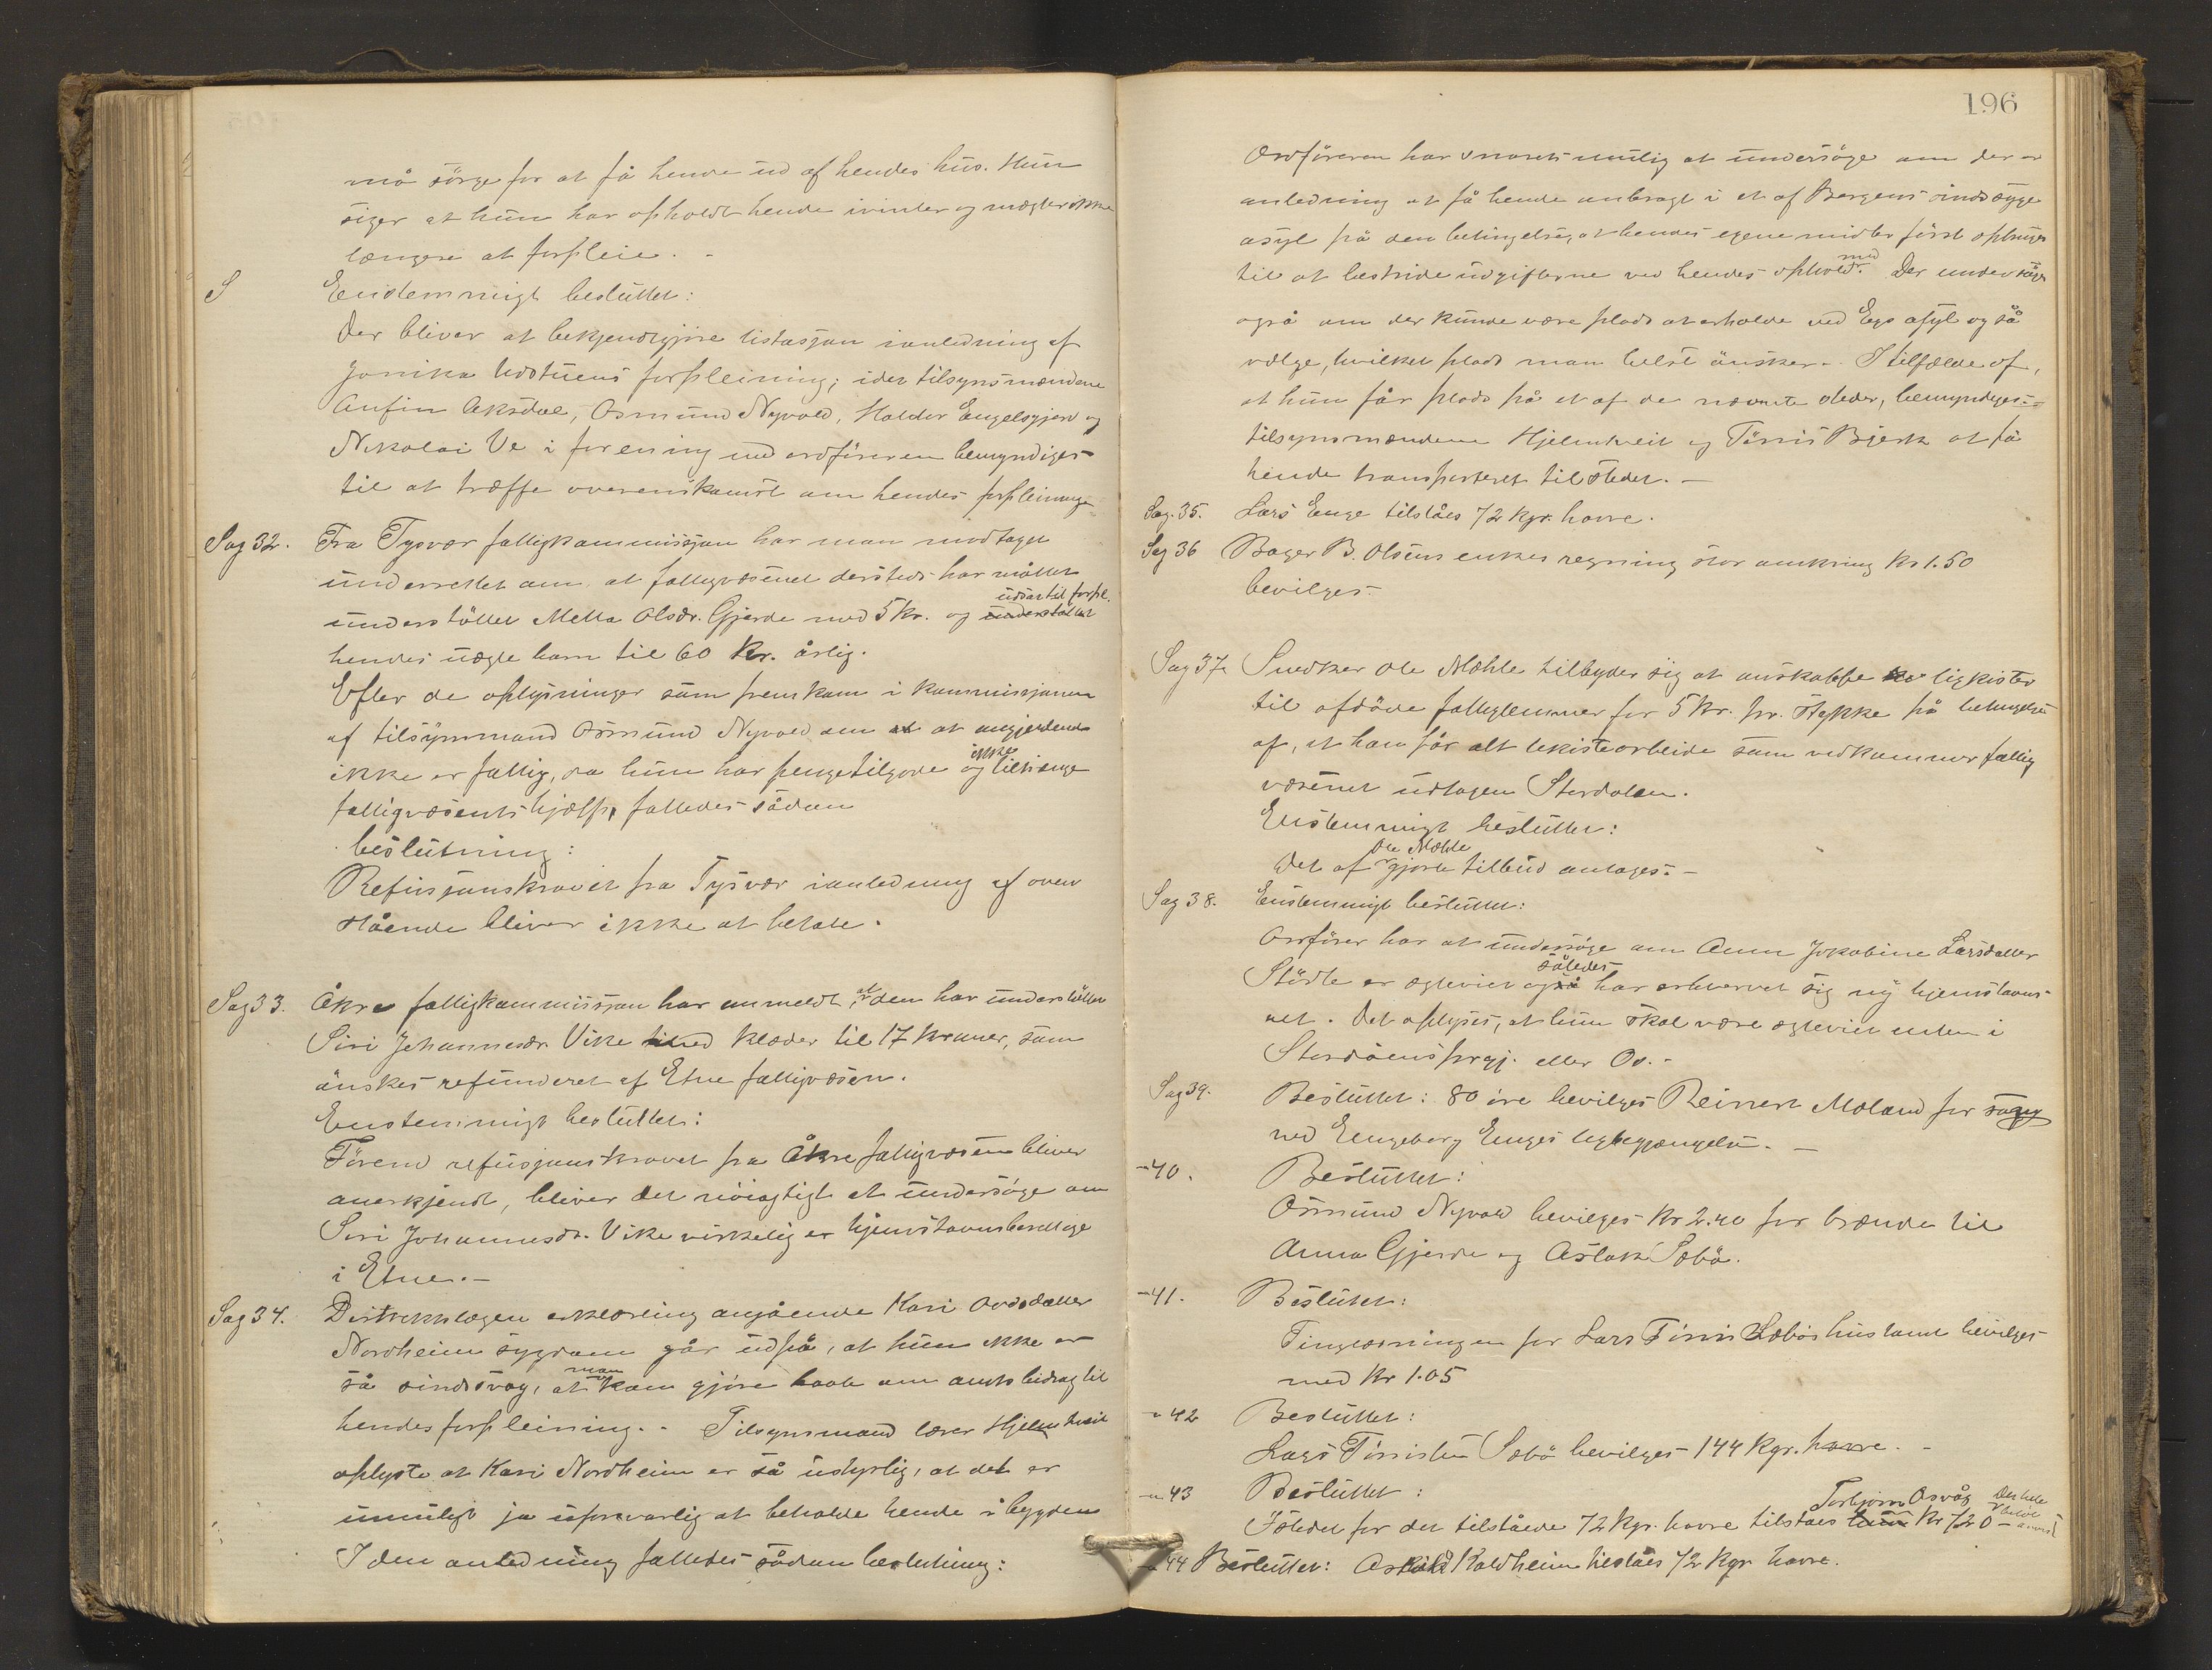 må sörge for at få hende ud af hendes hus. Hun
siger at hun har opholdt hende ivinter og mægter ikke
længere at forpleie. -
S Enstemmigt besluttet:
Der bliver at bekjendtgjöre listasjon ianledning af
Jonika Udstuens forpleining; idet tilsynsmændene
Anfin Aksdal, Osmund Nyvold, Haldor Engelsgjerd og
Nikolai Ve i forening med ordföreren bemyndiges
til at træffe overenskomst om hendes forpleining
Sag 32. Fra Tysvær fattigkommissjon har man modtaget
underrettet om, at fattigvæsenet dersteds har måttet
udsat til forpl.
understöttet Metta Olsdr. Gjerde med 5 kr. og understöttet
hendes uægte barn til 60 kr. årlig.
Efter de oplysninger som fremkom i kommissjonen
af tilsynsmand Osmund Nyvold om at at angjeldende
ikke er fattig, da hun har penge tilgode og ikke tiltrænge
fattigvæsents hjælp, fattedes sådan
beslutning:
Refusjonskravet fra Tysvær ianledning af oven
stående bliver ikke at betale.
Sag 33. Åkre fattigkommissjon har anmeldt, at den har understöttet
Siri Johannesdr. Vike med klæder til 17 kroner, som
önskes refunderet af Etne fattigvæsen.
Enstemmigt besluttet:
Förend refusjonskravet fra Åkre fattigvæsen bliver
anerkjendt, bliver det nöiagtigt at undersöge om
Siri Johannesdr. Vike virkelig er hjemstavnsberettige
i Etne. -
Sag 34. Distriktslægen erklæring angående Kari Ovedatter
Nordheim sygdom går ud på, at hun ikke er
så sindssvag, at man kan gjöre krav om amtsbidrag til
hendes forpleining. - Tilsynsmand Hjelmtveit
oplyste at Kari Nordheim er så ustyrlig, at det er
umuligt ja uforsvarlig at beholde hende i bygden
I den anledning fattedes sådan beslutning:
196
Ordföreren har snarest mulig at undersöge om der er
anledning at få hende anbragt i et af Bergens sindssyge
asyl på den betingelse, at hendes egne midler först opbruges
til at bestride udgifterne ved hendes ophold. Der undersöges
også om der kunde være plads at erholde ved Egs asyl og så
vælge, hvilken plads man helst önsker. - Itilfælde af,
at hun får plads på et af de nævnte steder, bemyndiges
tilsynsmændene Hjelmtveit og Tönnis Bjerk at få
hende transporteret til stedet. -
Sag. 35. Lars Enge tilståes 72 kgr. havre.
Sag 36 Bager B. Olsens enkes regning stor omkring kr 1.50
bevilges
Sag 37. Snedker Ole Mæhle tilbyder sig at anskaffe ligkister
til afdöde fattiglemmer for 5 kr. pr. stykke på betingelse
af, at han får alt likistearbeide som vedkommer fattig
væsenet udtagen Stordalen.
Enstemmigt besluttet:
Det af Ole Mæhle gjorte tilbud antages. -
Sag 38. Enstemmigt besluttet:
Ordförer har at undersöge om Anna Jokobine Larsdatter
Stödle er egteviet og således har erhvervet sig ny hjemstavns
ret. Det oplyses, at hun skal være egteviet enten i
Stordöens prgj. eller Os. -
Sag 39. Besluttet: 80 öre bevilges Reinert Moland for sang
ved Engeborg Enges ligbegjængelse. -
- 40. Besluttet:
Osmund Nyvold bevilges kr 2.40 for brænde til
Anna Gjerde og Aslak Sæbö.
- 41. Besluttet:
Tinglesningen for Lars Tönnis Sæbös husleie bevilges
med kr 1.05
- 42 Besluttet:
Lars Tönnisen Sæbö bevilges 144 kgr. havre. -
- 43 Besluttet:
Istedet for det tilståede 72 kgr. havre tilståes Torbjörn Osvåg kr 7.20 -
- 44 Besluttet: Askild Kaldheim tilståes 72 kgr havre.